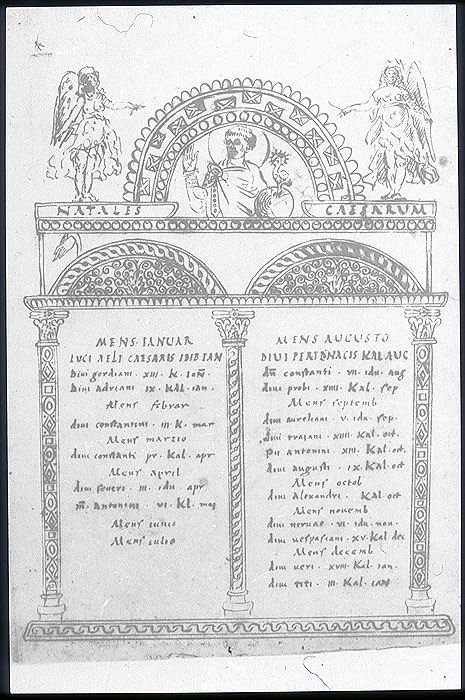 NATALES CAESARUM
MENS · IANUAR
LUCI AELI CAESARIS IDIB IAN
Divi gordiani · XIII · K · IAN̄
Divi adriani IX · KAL · ian ·
Mens februar
divi constantini · III · K · mar
Mens marzio
divi constanti pr · Kal · apr
Mens april
divi severi · III · idu · apr
m̄ · Antonini · VI · Kl · mai
Mens iunio
Mens iulio
MENS AUGUSTO
DIUI PERTENACIS KAL AUG
dn̄ constanti · VII · idu · aug
divi probi · XIIII · Kal · sep
Mens septemb
divi aureliani · V · idu · sep ·
divi traiani · XIIII · Kal · oct ·
pii antonini · XIII · Kal · oct ·
divi augusti · IX · Kal · oct
Mens octob
divi Alexandri · Kal oct
Mens novemb
divi nervae · VI · idu · nou ·
divi vespasiani · XV · Kal dec
Mens decemb
divi ueri · XVIII · Kal · ian ·
divi titi · III · Kal · IAN